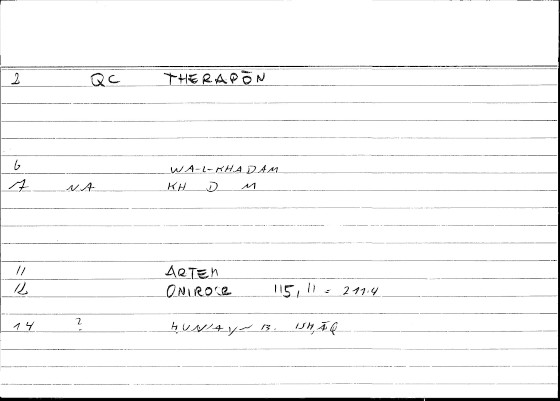 2 QC THERAPŌN
6 WA-L-KHADAM
7 NA KH D M
11 ARTEM
12 ONIROCR 115, 11 = 211.4
14 ? ḤUNAYN B. ISḤĀQ